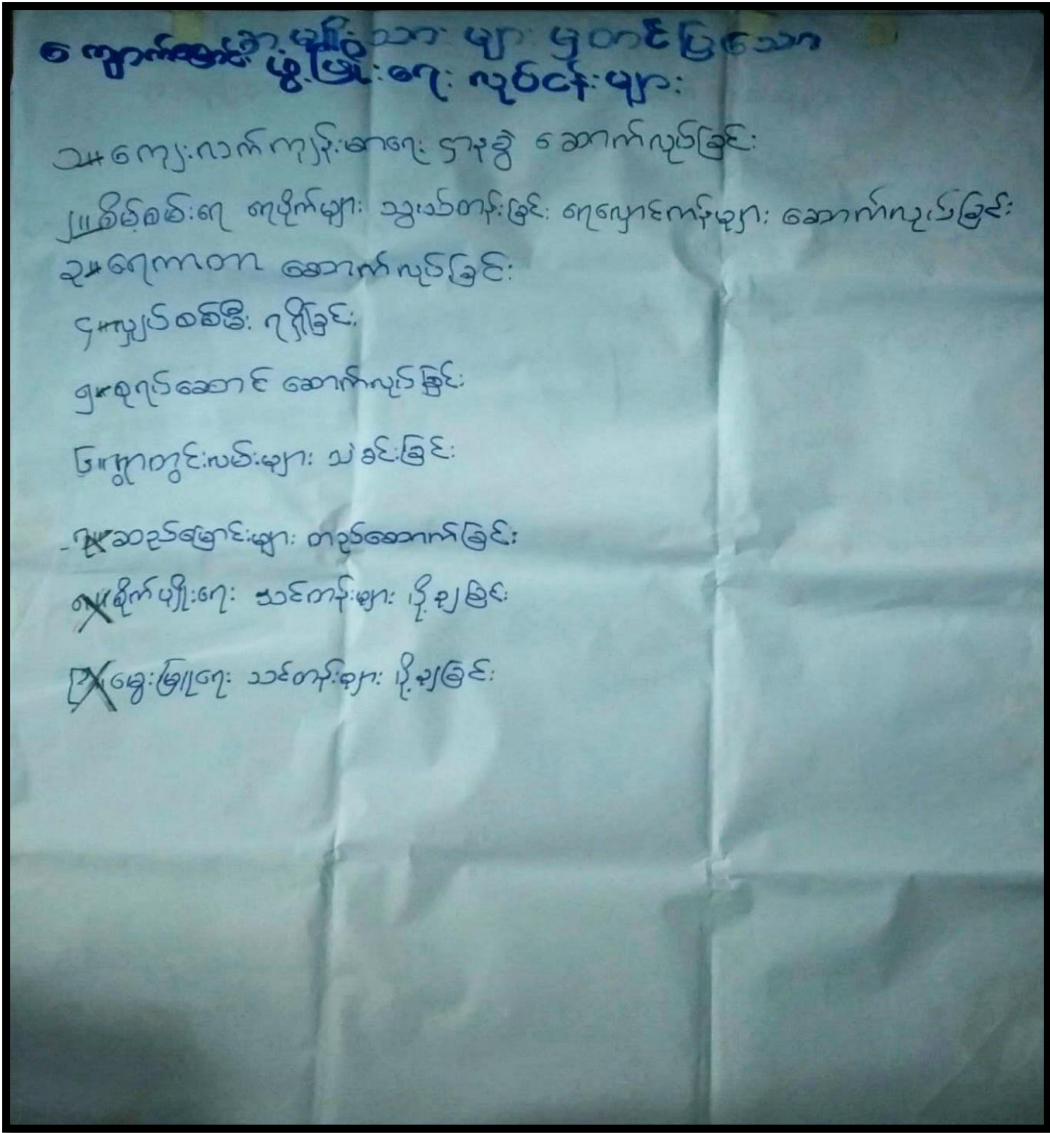 ကျောက်မောင်း အမျိုးသားများ မှတင်ပြသော
ဖွံ့ဖြိုးရေး လုပ်ငန်းများ
၁။ ကျေးလက်ကျန်းမာရေး ဌာနခွဲ ဆောက်လုပ်ခြင်း
၂။ စိမ့်စမ်းရေ ရေပိုက်များ သွယ်တန်းခြင်း ရေလှောင်ကန်များ ဆောက်လုပ်ခြင်း
၃။ ရေကာတာ ဆောက်လုပ်ခြင်း
၄။ လျှပ်စစ်မီး ရရှိခြင်း
၅။ စုရပ်ဆောင် ဆောက်လုပ်ခြင်း
၆။ ရွာတွင်းလမ်းများ သဲခင်းခြင်း
၇။ ဆည်မြောင်းများ တည်ဆောက်ခြင်း
၈။ စိုက်ပျိုးရေး သင်တန်းများ ပို့ချခြင်း
၉။ မွေးမြူရေး သင်တန်းများ ပို့ချခြင်း